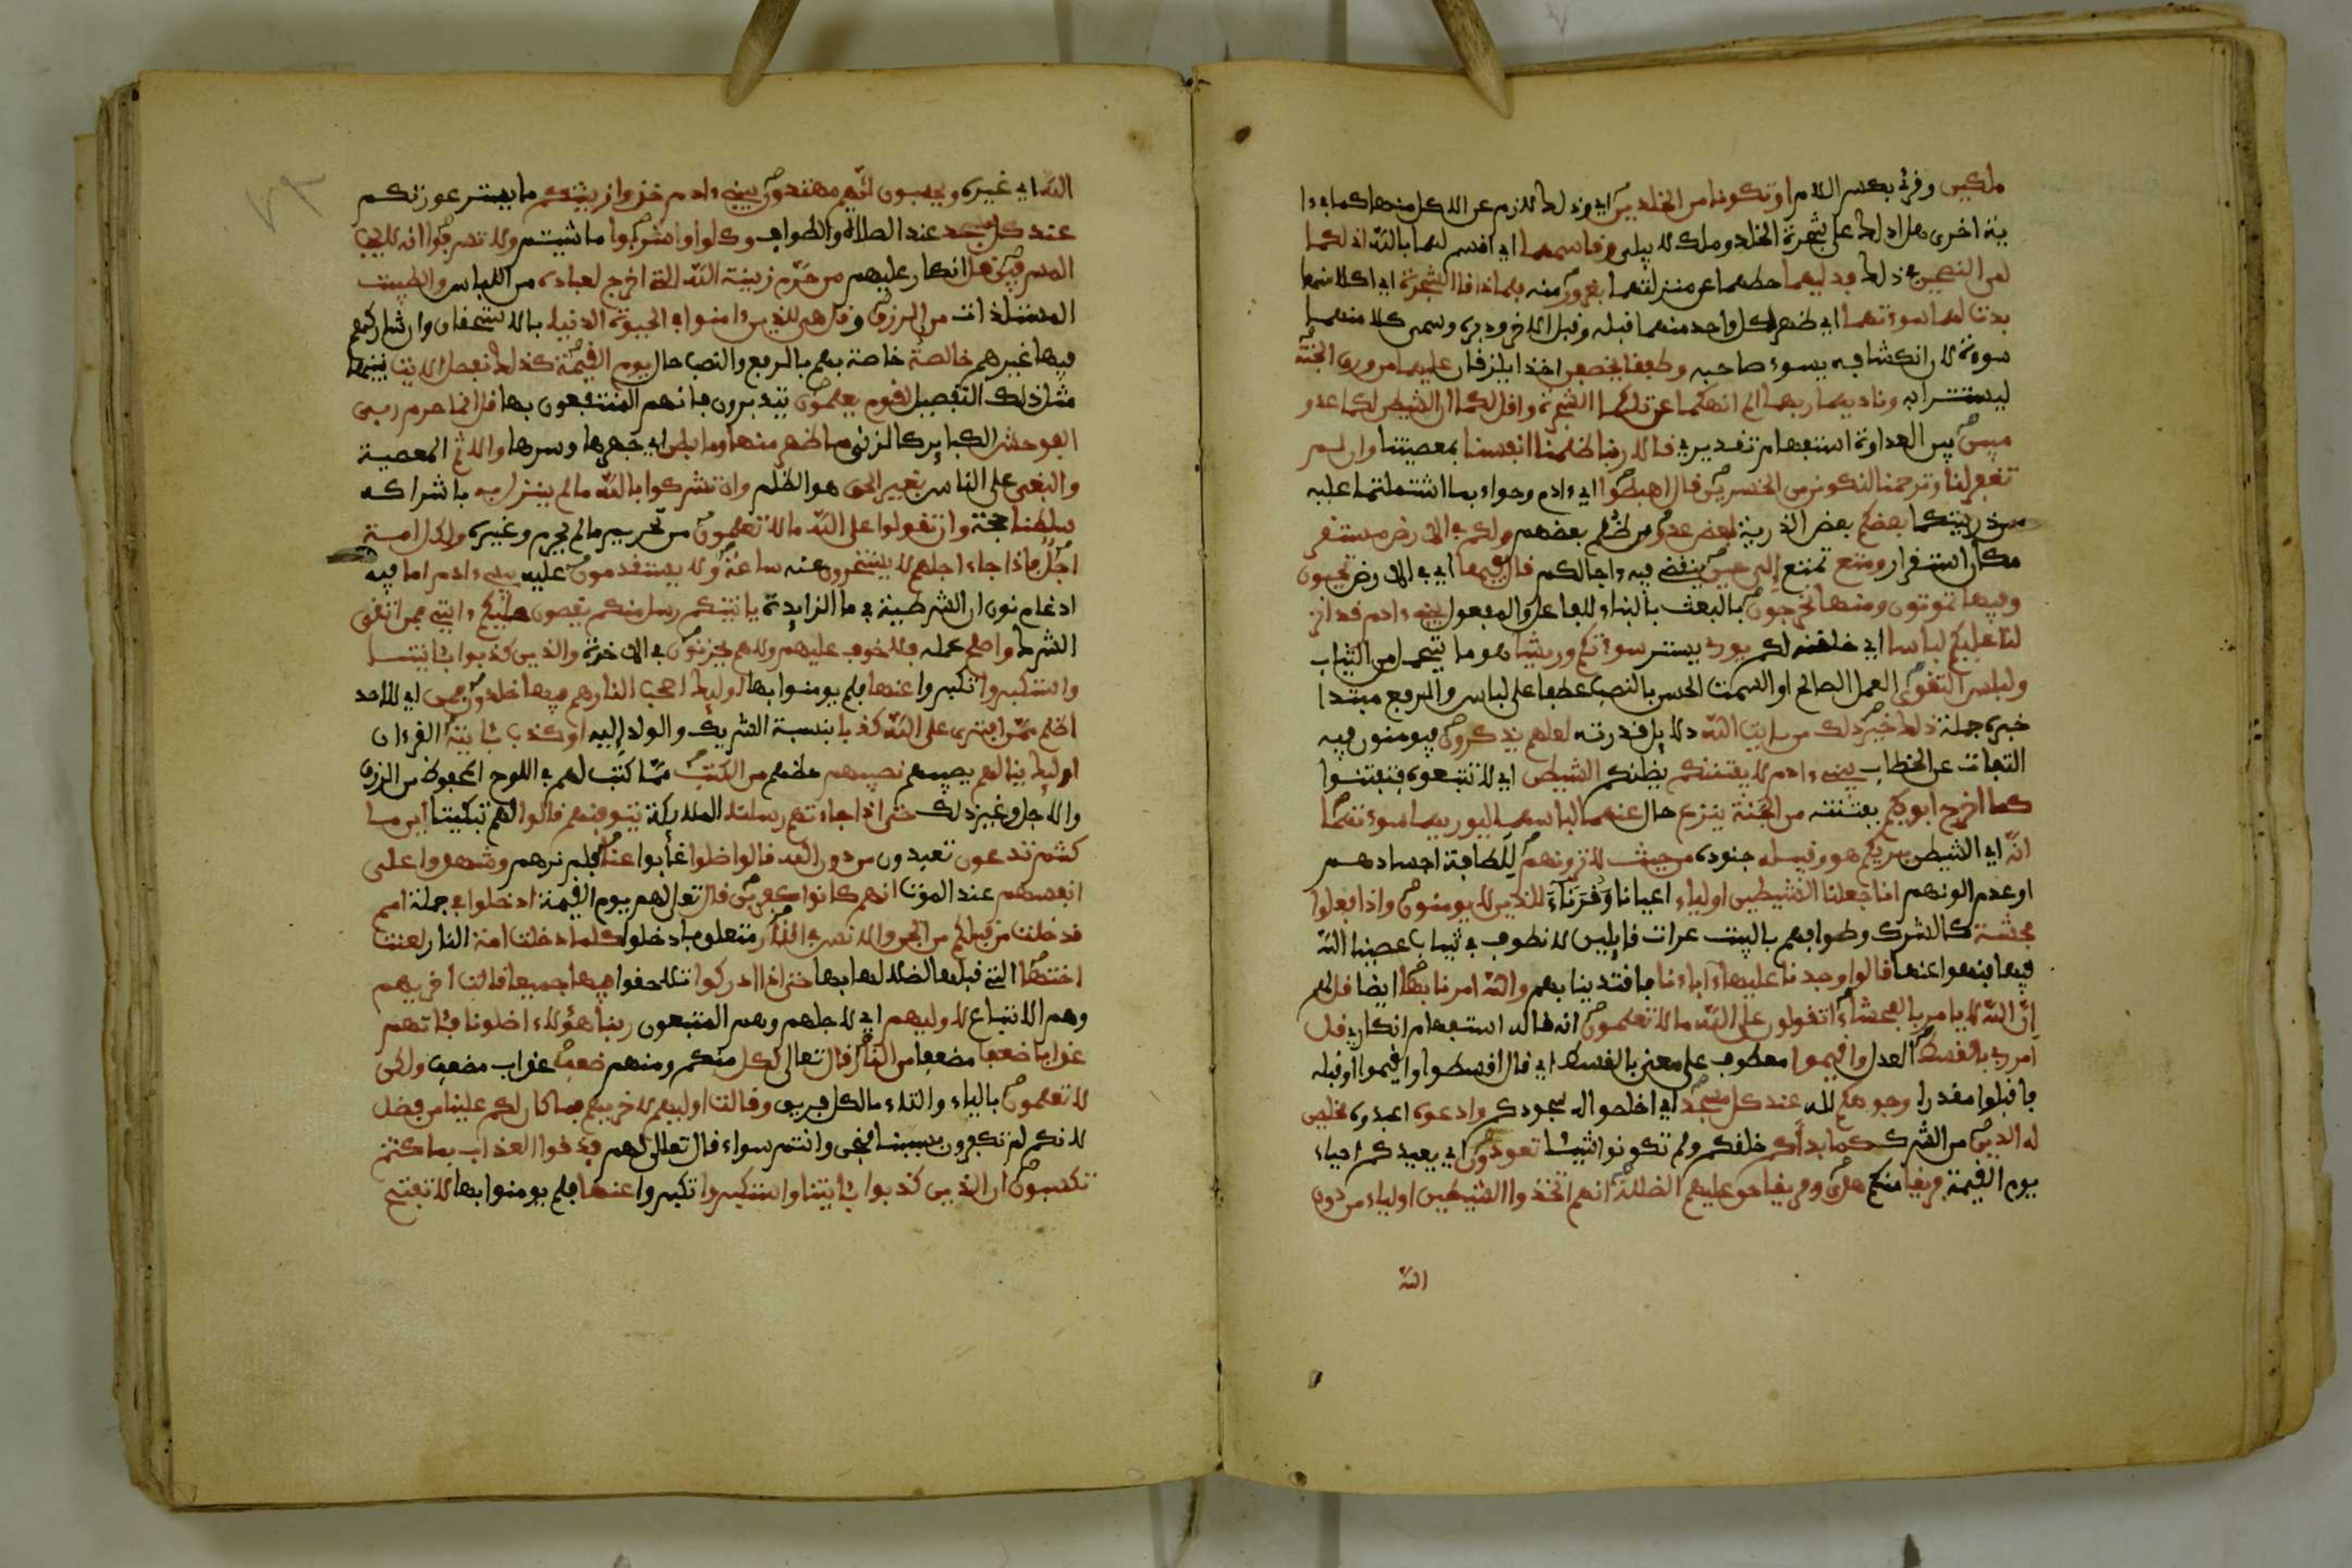 ملكين وقرئ بكسر اللام او تكونا من الخلدين اي وذلك لازم عن الاكل منها كما في ءا
ية اخرى هل ادلك على شجرة الخلد وملك لا يبلى وقاسمهما اي اقسم لهما بالله اني لكما
لمن النصحين في ذلك فدليهما حطهما عن منزلتهما بغرور منه فلما ذاقا الشجرة اي اكلا منها
بدت لهما سوءتهما اي ظهر لكل واحد منهما قبله وقبل الاخر ودبره وسمي كلا منهما
سوءة لان انكشافه يسوء صاحبه وطفقا يخصفن اخذا يلزقان عليهما من ورق الجنة
ليستترا به وناديهما ربهما الم انهكما عن تلكما الشجرة واقل لكما ان الشيطن لكما عدو
مبين بين العداوة استفهام تقدير قالا ربنا ظلمنا انفسنا بمعصيتنا وان لم
تغفر لنا وترحمنا لنكونن من الخسرين قال اهبطوا اي ءادم وحواء بما اشتملتما عليه
من ذريتكما بعضكم بعض الذرية لبعض عدو من ظلم بعضهم ولكم في الارض مستقر
مكان استقرار ومتع تمتع الى حين ينقضي فيه ءاجالكم قال فيها اي في الارض تحيون
وفيها تموتون ومنها تخرجون بالبعث بالبناء للفاعل والمفعول يبني ءادم قد انز
لنا عليكم لباسا اي خلقنه لكم يوري يستر سوءتكم وريشا هو ما يتجمل من الثياب
ولباس التقوى العمل الصالح او السمت الحسن بالنصب عطفا على لباس والرفع مبتدا
خبره جملة ذلك خير ذلك من ءايت الله دلايل قدرته لعلهم يذكرون فيومنون فيه
التفات عن الخطاب يبني ءادم لا يفتننكم يضلنكم الشيطن اي لا تتبعوه فتفتنوا
كما اخرج ابويكم بفتنته من الجنة ينزع حال عنهما لباسهما ليريهما سوءتهما
انه اي الشيطن يريكم هو وقبيله جنوده من حيث لا ترونهم للطافة اجسادهم
او عدم الونهم انا جعلنا الشيطين اولياء اعيانا وقرناء للذين لا يومنون واذا فعلوا
فحشة كالشرك وطوافهم بالبيت عرات قايلين لا نطوف في ثياب عصينا الله
فيها فنهوا عنها قالوا وجدنا عليها ءاباءنا فاقتدينا بهم والله امرنا بها ايضا قل لهم
ان الله لا يامر بالفحشاء اتقولون على الله ما لا تعلمون انه قاله استفهام انكاري قل
امر ربي بالقسط العدل واقيموا معطوف على معنى بالقسط اي قال اقسطوا واقيموا او قبله
فاقبلوا مقدرا وجوهكم لله عند كل مسجد اي اخلصوا له سجودكم وادعوه اعبدوه مخلصين
له الدين من الشرك كما بداكم خلقكم ولم تكونوا شيئا تعودون اي يعيدكم احياء
يوم القيمة فريقا منكم هدى وفريقا حق عليهم الضللة انهم اتخذوا الشيطين اولياء من دون
الله
الله اي غيره ويحسبون انهم مهتدون يبني ءادم خذوا زينتكم ما يستر عورتكم
عند كل مسجد عند الصلاة والطواف وكلوا واشربوا ما شيتم ولا تسرفوا انه لا يحب
المسرفين قل انكار عليهم من حرم زينة الله التي اخرج لعباده من اللباس والطيبت
المستلذات من الرزق قل هي للذين ءامنوا في الحيوة الدنيا بالاستحقاق وان شاركهم
فيها غيرهم خالصة خاصة بهم بالرفع والنصب حال يوم القيمة كذلك نفصل الايت نبينها
مثل ذلك التفصيل لقوم يعلمون يتدبرون فانهم المنتفعون بها قل انما حرم ربي
الفوحش الكباير كالزنى ما ظهر منها وما بطن اي جهرها وسرها والاثم المعصية
والبغي على الناس بغير الحق هو الظلم وان تشركوا بالله ما لم ينزل به باشراكه
سلطنا حجة وان تقولوا على الله ما لا تعلمون من تحريم ما لم يحرم وغيره ولكل امة
اجل فاذا جاء اجلهم لا يستخرون عنه ساعة ولا يستقدمون عليه يبني ءادم اما فيه
ادغام نون ان الشرطية في ما الزايدة ياتينكم رسل منكم يقصون عليكم ءايتي فمن اتقى
الشرك واصلح عمله فلا خوف عليهم ولا هم يحزنون في الاخرة والذين كذبوا بايتنا
واستكبروا تكبروا عنها فلم يومنوا بها اوليك اصحب النار هم فيها خلدون فمن اي لا احد
اظلم ممن افترى على الله كذبا بنسبة الشريك والولد اليه او كذب بايته القرءان
اوليك ينالهم يصيبهم نصيبهم حظهم من الكتب مما كتب لهم في اللوح المحفوظ من الرزق
والاجل وغير ذلك حتى اذا جاءتهم رسلنا الملايكة يتوفونهم قالوا لهم تبكيتا اين ما
كنتم تدعون تعبدون من دون الله قالوا ضلوا غابوا عنا فلم نرهم وشهدوا على
انفسهم عند الموت انهم كانوا كفرين قال تعالى لهم يوم القيمة ادخلوا في جملة امم
قد خلت من قبلكم من الجن والانس في النار متعلق بادخلوا كلما دخلت امة النار لعنت
اختها التي قبلها لضلالها بها حتى اذا ادركوا تلاحقوا فيها جميعا قالت اخريهم
وهم الاتباع لاوليهم اي لاجلهم وهم المتبعون ربنا هؤلاء اضلونا فئاتهم
عذابا ضعفا مضعفا من النار قال تعالى لكل منكم ومنهم ضعف عذاب مضعف ولكن
لا تعلمون بالياء والتاء ما لكل فريق وقالت اوليهم لاخريهم فما كان لكم علينا من فضل
لانكم لم تكفرون بسببنا فنحن وانتم سواء قال تعالى لهم فذوقوا العذاب بما كنتم
تكسبون ان الذين كذبوا بايتنا واستكبروا تكبروا عنها فلم يومنوا بها لا تفتح